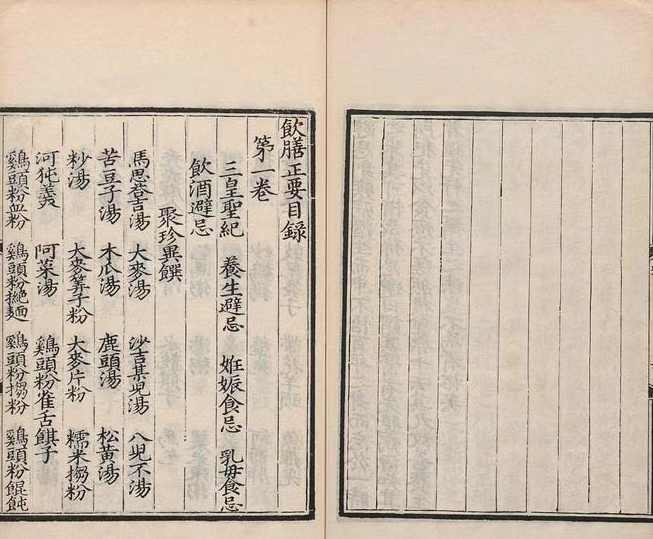 飲膳正要目錄
第一卷
三皇聖紀 養生避忌 妊娠食忌 乳母食忌
飲酒避忌
聚珍異饌
馬思荅吉湯 大麥湯 沙吉某児湯 八児不湯
苦豆子湯 木瓜湯 鹿頭湯 松黃湯
粆湯 大麥筭子粉 大麥片粉 糯米搊粉
河㹠羹 阿菜湯 鷄頭粉雀舌子
鷄頭粉血粉 鷄頭粉撧麵 鷄頭粉搊粉 鷄頭粉餛飩